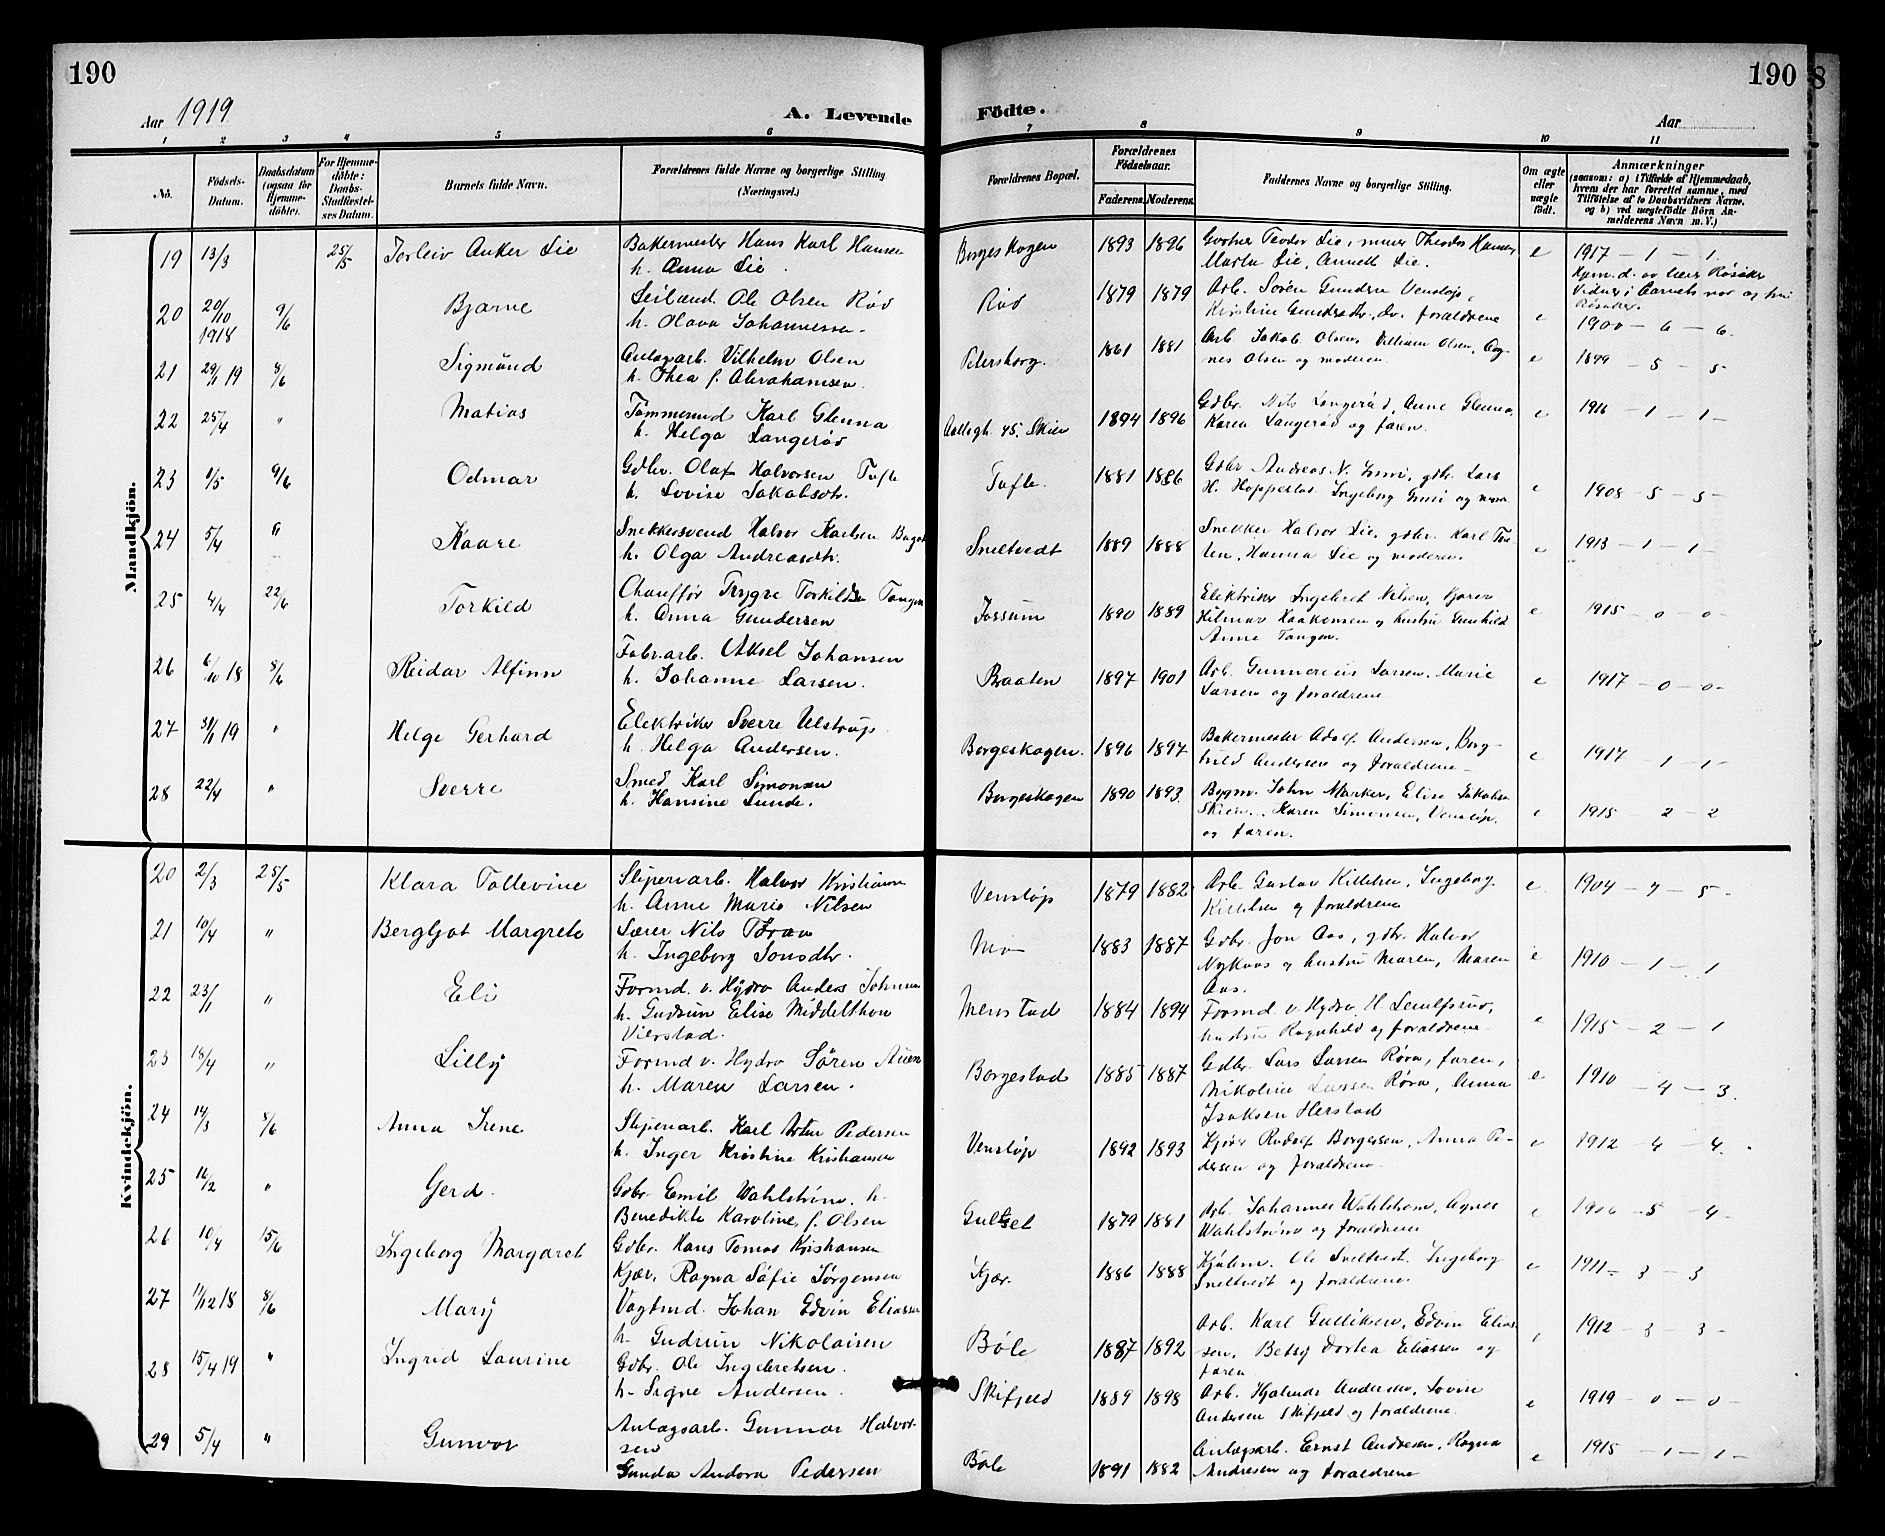 190
190
8
Aar 1919
A. Levende
Födte.
Aar
1 2 3 4 5 6 7 8 9 10 11
No.
Födsels-
Datum.
Daabsdatum
(ogsaa for
Hjemme-
döbte).
For Hjemme-
döbte:
Daabs-
Stadfæstel-
ses Datum.
Barnets fulde Navn.
Forældrenes fulde Navne og borgerlige Stilling
(Næringsvei.)
Forældrenes Bopæl.
Forældrenes
Födselsaar.
Faderens. Moderens.
Faddernes Navne og borgerlige Stilling.
Om ægte
eller
uægte
födt.
Anmærkninger
(saasom: a) i Tilfælde af Hjemmedaab,
hvem der har forrettet samme, med
Tilföielse af to Daabsvidners Navne.
og b) ved uægtefödte Börn An-
melderens Navn m. V.)
Mandkjön.
19 13/3 25/5 Torleiv Anker Lie Bakermester Hans Karl Hansen
h. Anna Lie. Borgeskogen 1893 1896 Gartner Teodor Lie, murer Theodor Hansen
Marta Lie, Annette Lie. e 1917 – 1 – 1.
20 20/10 1918 9/6 Bjarne Seilmd. Ole Olsen Röd
h. Olava Johannessen Röd 1879 1879 Arb. Sören Gundersen Venstöp,
Kristine Gundersdtr. do. foraldrene e 1900 – 6 – 6.
21 29/1 19 8/6 Sigmund Anlagsarb. Vilhelm Olsen
h. Thea f. Abrahamsen. Petersborg. 1861 1881 Arb. Jakob Olsen, Villiam Olsen, Ag-
nes Olsen og moderen. e 1899 – 5 – 5-
22 25/4 " Matias Tömmermd Karl Glenna
h. Helga Langeröd 45. Skien 1894 1896 Gdbr. Nils Langeröd, Anne Glenna,
Karen Langeröd og faren. e 1916 – 1 – 1 –
23 1/5 9/6 Odmar Gdbr. Olaf Halvorsen Tufte
h. Lovise Jakobsdtr. Tufte. 1881 1886 Gdbr Andreas N. Grini, gdbr. Lars
H. Hoppestad. Ingeborg Grini og mor e 1908 – 5 – 5 –
24 5/4 " Kaare Snekkersvend Halvor Karlsen
h. Olga Andreasdtr. Sneltvedt 1889 1888 Snekker Halvor Lie, gdbr. Karl
Hanna Lie og moderen. e 1913 – 1 – 1 –
25 4/4 22/6 Torkild Chauffør Trygve Torkildsen Tangen
h. Anna Gundersen Fossum 1890 1889 Elektriker Ingebret Nilsen, kjører
Hilmar Haakonsen og hustru Gunhild
Anne Tangen. e 1915 – 0 – 0 –
26 6/10 18 8/6 Reidar Alfinn Fabrarb. Aksel Johansen
h. Johanne Larsen. Braaten 1897 1901 Arb. Gunnerius Larsen, Marie
Larsen og foraldrene e 1917 – 0 – 0 –
27 31/1 19 " Helge Gerhard Elektriker Sverre Ulstrup
h. Helga Andersen. Borgeskogen. 1896 1897 Bakermester Adolf Andersen, Borg-
hild Andersen og foraldrene. e 1917 – 1 – 1 –
28 22/4 " Sverre Smed Karl Simonsen
h. Hansine Lunde. Borgeskogen 1890 1893 Bygm. John Marker, Elise Jakobsen
Skien, Karen Simonsen, Venstöp,
og faren. e 1915 – 2 – 2
Kvindekjön.
20 2/3 25/5 Klara Tollevine Sliperiarb. Halvor Kristiansen
h. Anne Marie Nilsen Venstöp 1879 1882 Arb. Gustav Kittelsen, Ingeborg
Kittelsen og foraldrene e 1904 – 7 – 5 –
21 10/4 " Bergljot Margrete Lærer Nils
h. Ingeborg Jonsdtr. Mo 1883 1887 Gdbr. Jon Aas, gdbr. Halvor
Nykaas og hustru Maren, Maren
Aas. e 1910 – 1 – 1
22 23/1 " Eli Formd. v. Hydro Anders Johnsen
h. Gudrun Elise Middelthon
Vierstad. Menstad 1884 1894 Formd. v. Hydro H.
hustru Ragnhild og foraldrene. e 1915 – 2 – 1
23 18/4 " Lilly Formd v. Hydro Sören
h. Maren Larsen. Borgestad 1885 1887 Gdbr. Lars Larsen Röra, faren,
Nikoline Larsen Röra, Anna
Isaksen Herstad e 1910 – 4 – 3.
24 14/3 8/6 Anna Irene Sliperiarb. Karl Artur Pedersen
h. Inger Kristine Kristiansen Venstöp 1892 1893 Kjörer Rudolf Borgersen, Anna Pe-
dersen og foraldrene. e 1912 – 4 – 4.
25 16/2 " Gerd. Gdbr. Emil Wahlström, h.
Benedikte Karoline, f. Olsen Gulset 1879 1881 Arb. Johannes Wahlström, Agnes
Wahlström og foraldrene e 1906 – 5 – 4 –
26 10/4 15/6 Ingeborg Margaret Gdbr. Hans Tomas Kristiansen
Kjær, Ragna Sofie Jørgensen Kjær 1886 1888 Ole Sneltvedt. Ingeborg
Sneltvedt og foraldrene. e 1911 – 3 – 3
27 11/12 18 8/6 Mary Vagtmd. Johan Edvin Eliassen
h. Gudrun Nikolaisen Böle 1887 1892 Arb. Karl Gulliksen, Edvin Elias-
sen, Betsy Dortea Eliassen og
faren 1912 – 3 – 3 –
28 15/4 19 " Ingrid Laurine Gdbr. Ole Ingebretsen.
h. Signe Andersen. Skifjeld 1889 1898 Arb. Hjalmar Andersen, Lovise
Andersen Skifjeld og foraldrene. e 1919 – 0 – 0 –
29 5/4 " Gunvor Anlagsarb. Gunnar Halvor-
sen
Gunda Andora Pedersen Böle 1891 1882 Anlagsarb. Ernst Andresen, Ragna
Andresen og foraldrene e 1915 – 1 – 1 –